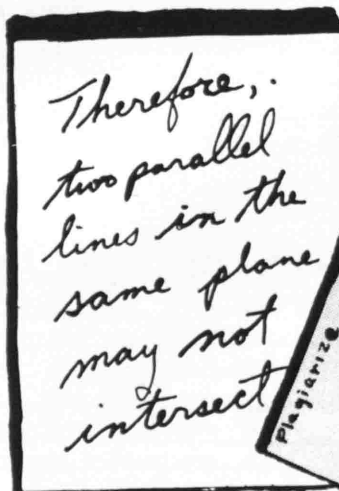 Therefore,.
two parallel
lines in the
same plane
may not
intersect
Plagiarize